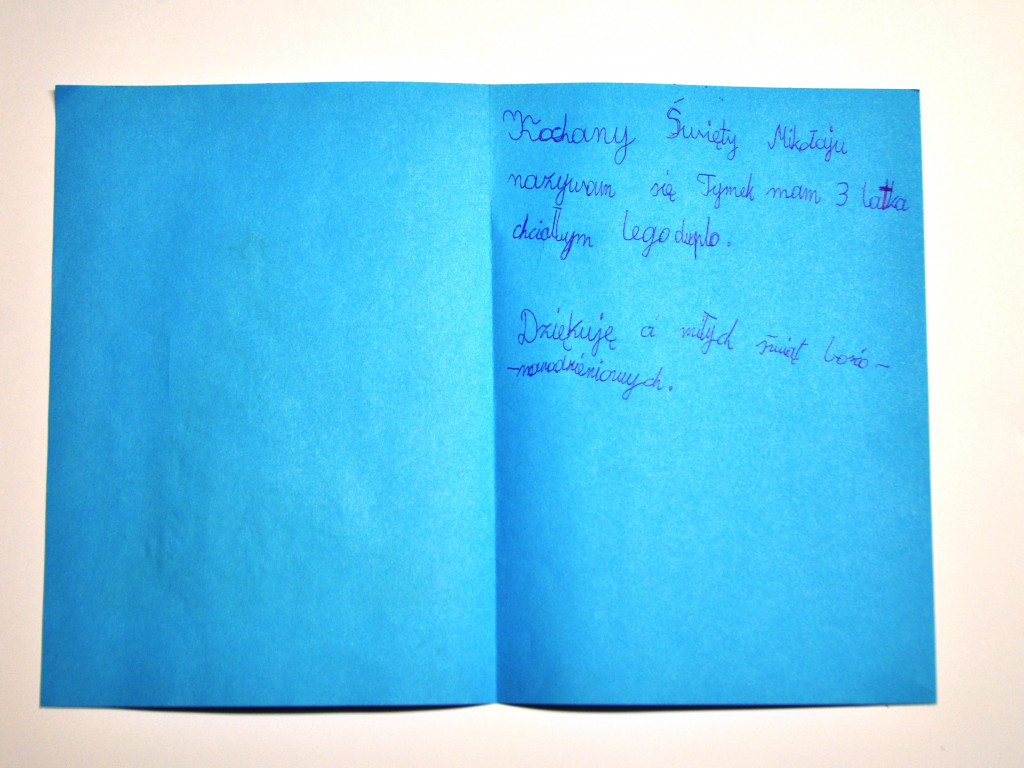 Kochany Święty Mikołaju
nazywam się Tymek mam 3 latka
chciałbym lego duplo.
Dziękuję ci miłych świąt bożo-
-narodzeniowych.